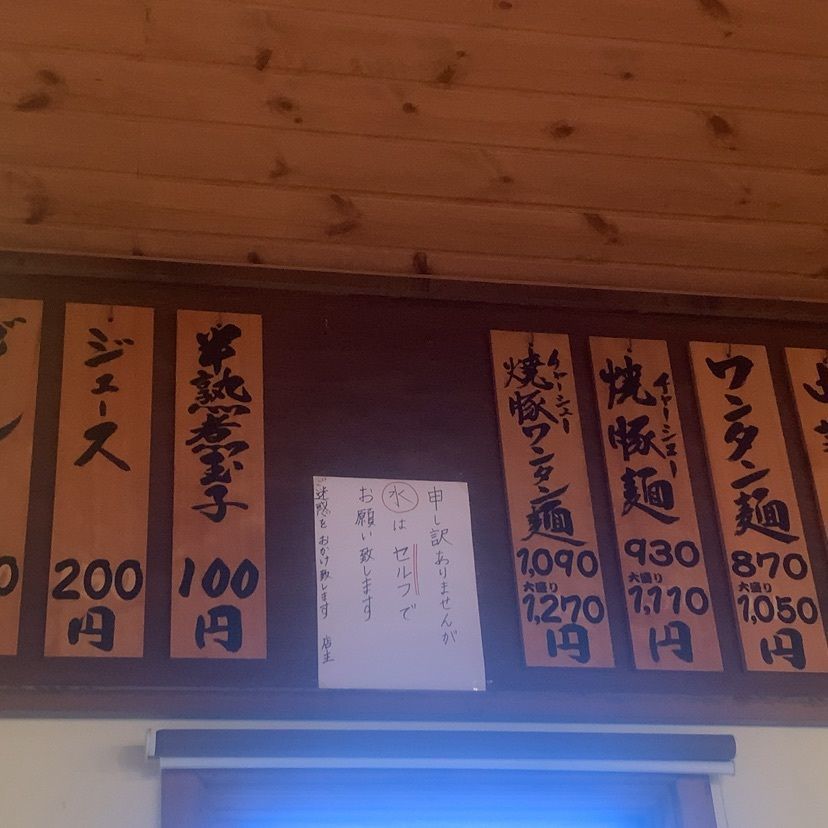 ワンタン麺
870
大盛り
1,050
円
焼豚麺
チャーシュー
930
大盛り
1,110
円
焼豚ワンタン麺
チャーシュー
1,090
大盛り
1,270
円
申し訳ありませんが
水はセルフで
お願い致します
ご迷惑をおかけ致します 店主
半熟煮玉子
100
円
ジュース
200
円